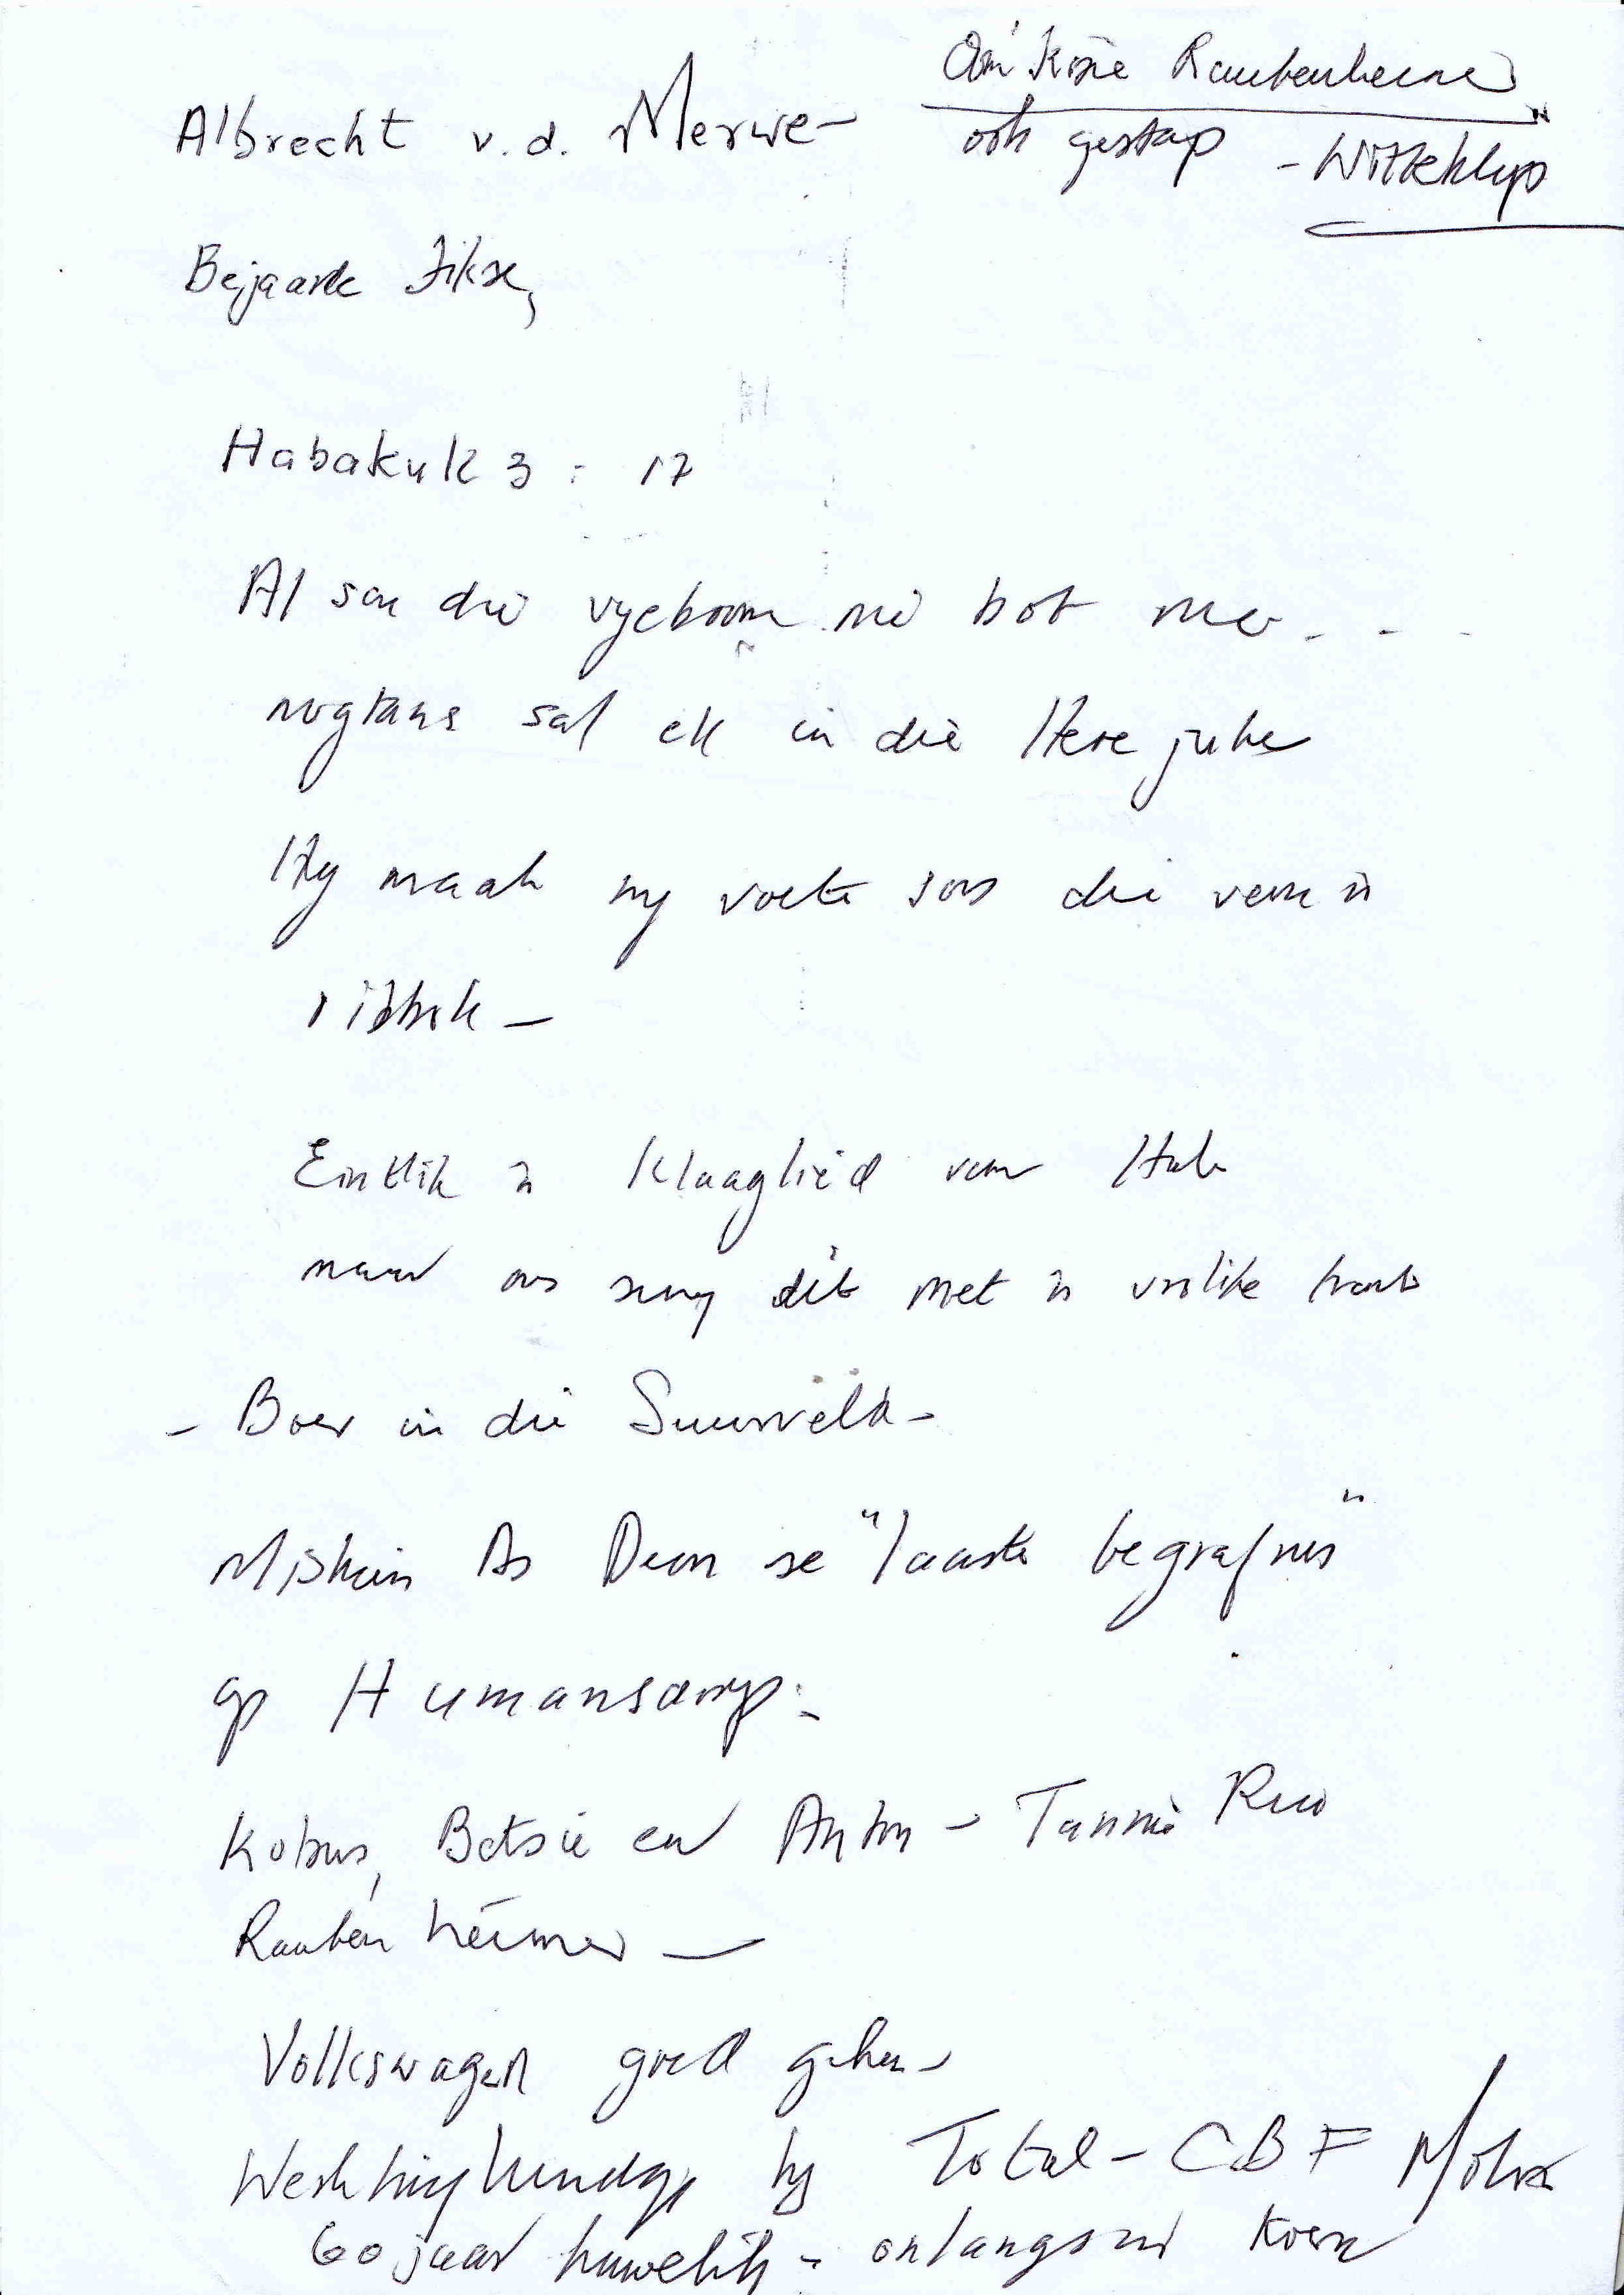 Oom Kosie Raubenheimer
Albrecht v.d. Merwe - ook gestap - Witteklip
Bejaarde fikse,
Habakuk 3 : 17
Al sou die vyeboom nie bot nie - - -
nogtans sal ek in die Here jubel
Hy maak my voete soos die van 'n
ribbok -
Eintlik 'n Klaaglied van Hab
maar ons sing dit met 'n vrolike
- Boer in die Suurveld -
Miskien As Deon se "laaste begrafnis"
op Humansdorp -
Kobus, Betsie en Anton - Tannie
Raubenheimer -
Volkswagen goed
by Total - CBF
60 jaar huwelik - onlangs